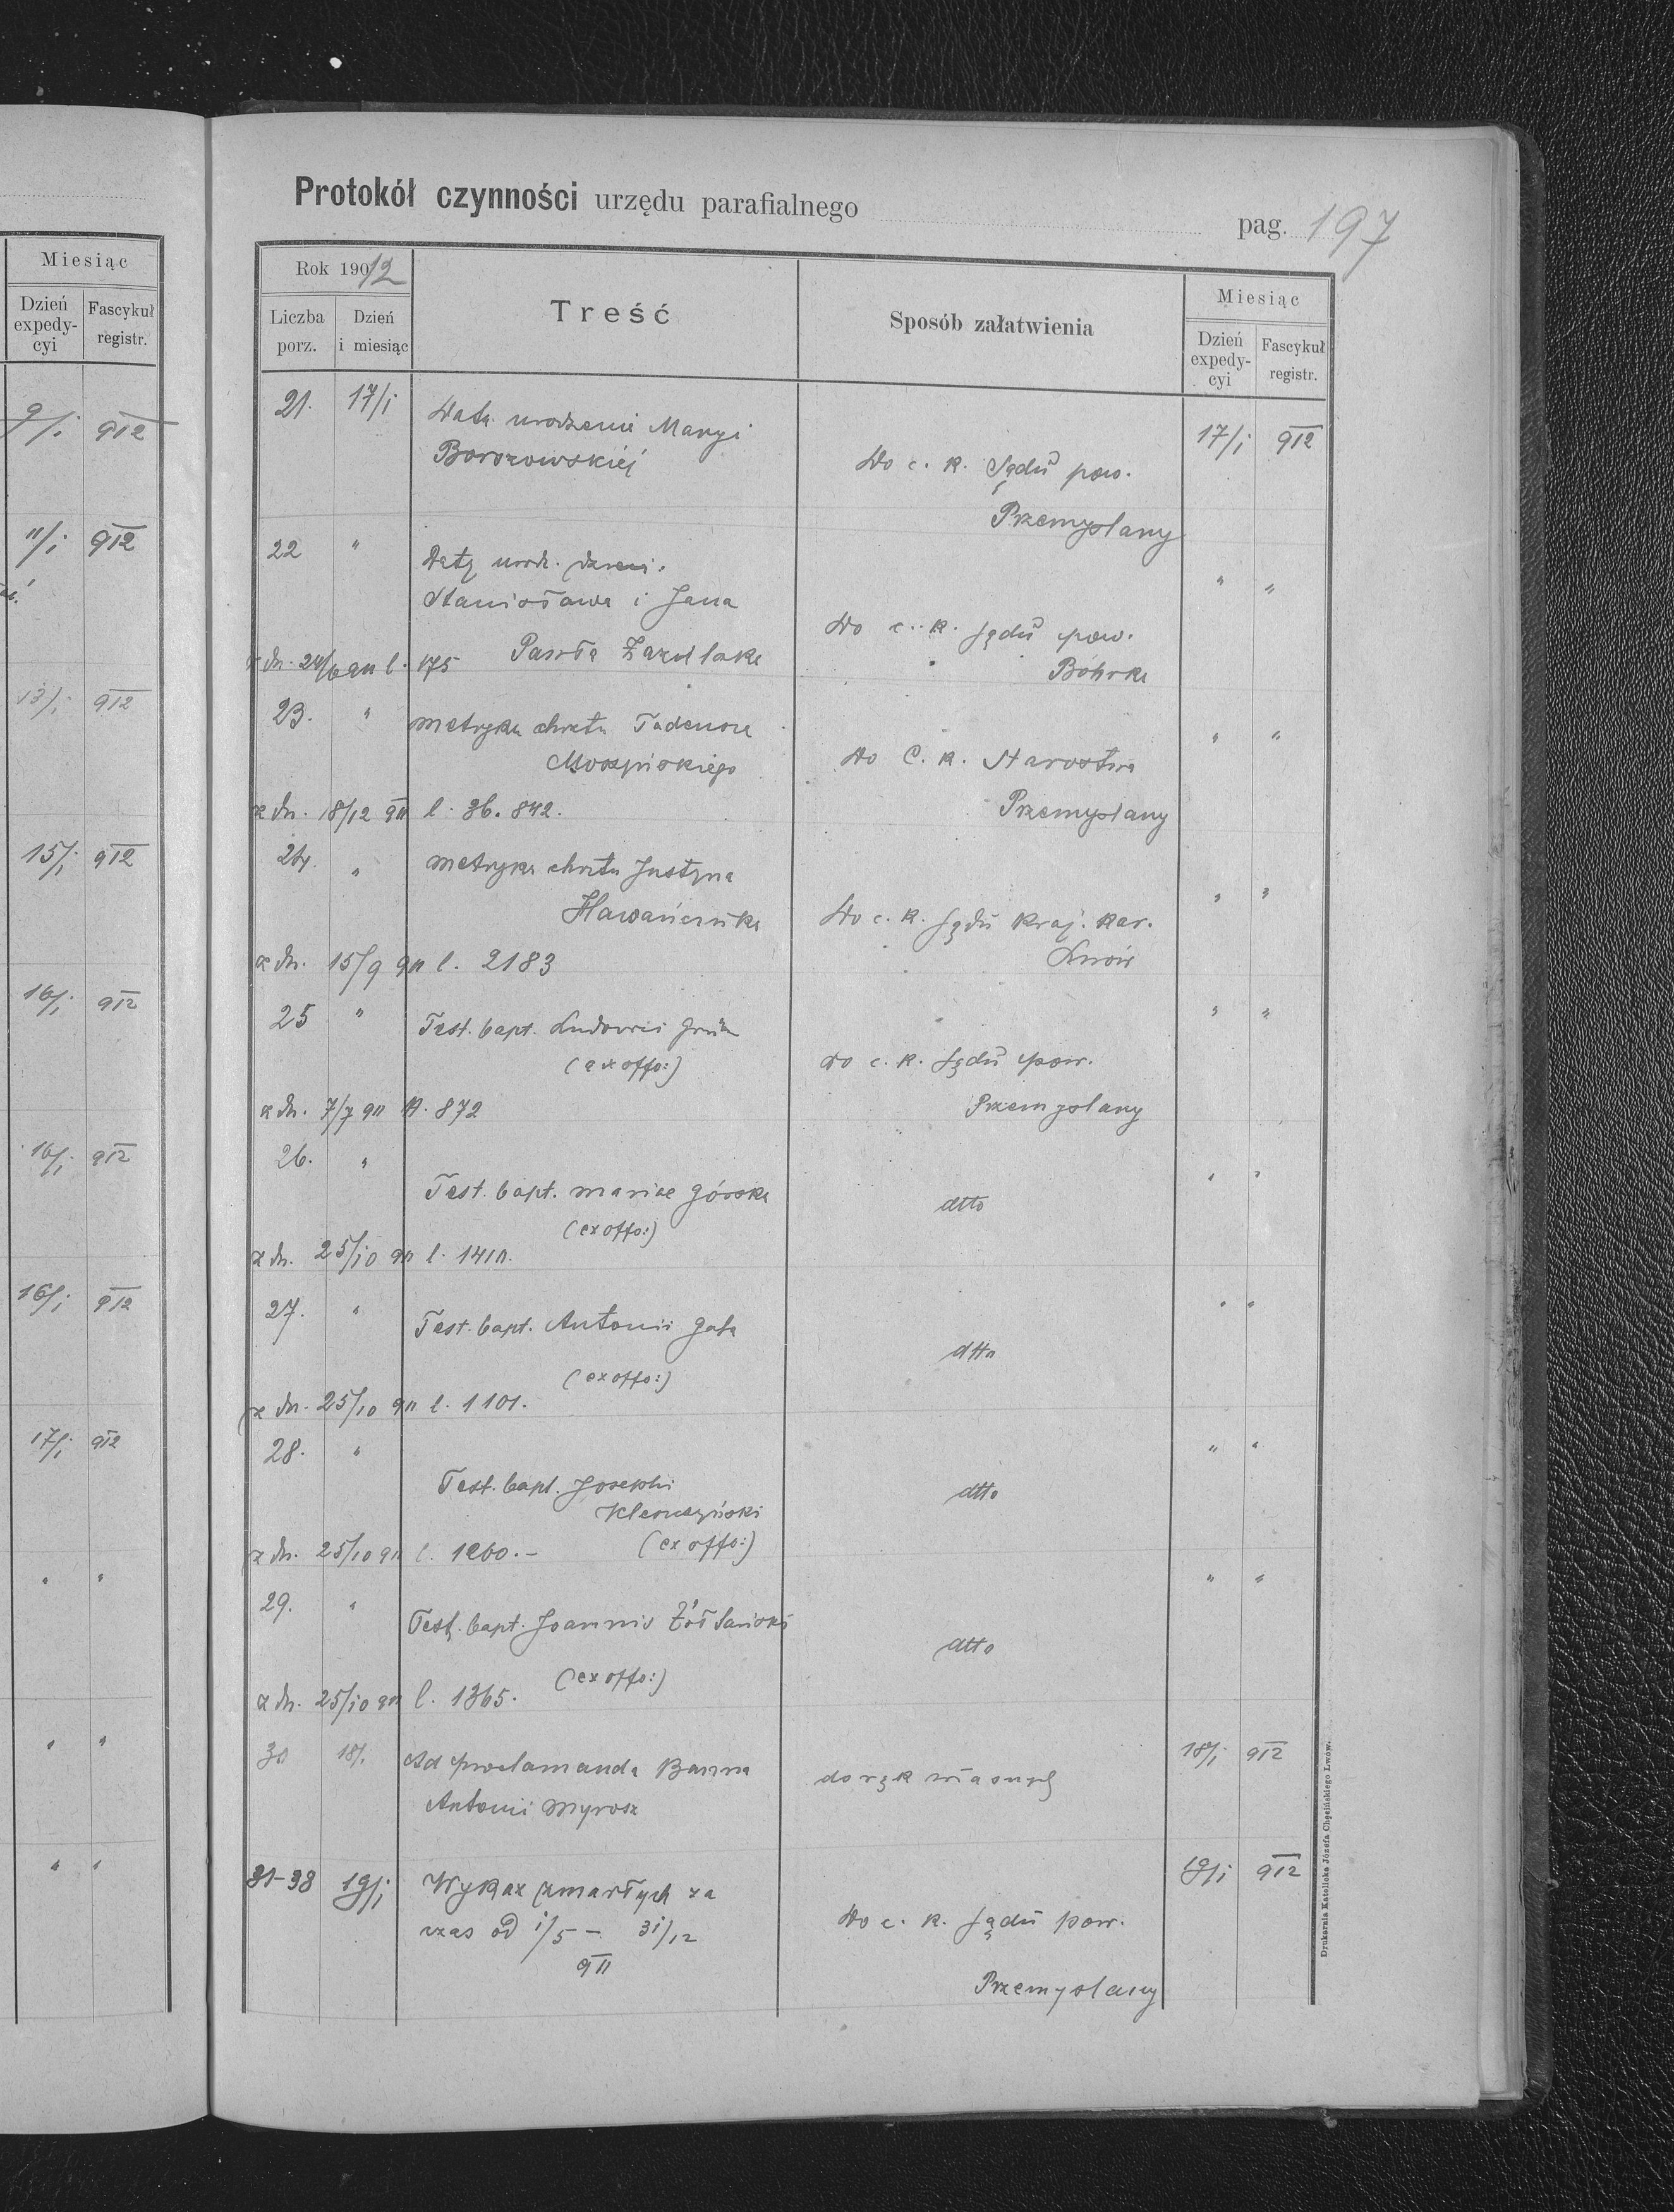 Miesiąc
Dzień expedy-cyi
Fascykuł registr.
9/I 912
11/I 912
13/I 912
15/I 912
16/I 912
16/I 912
16/I 912
17/I 912
" "
" "
" "
Protokół czynności urzędu parafialnego
pag. 197
Rok 1912
Liczba porz.
Dzień i miesiąc
Treść
Sposób załatwienia
Miesiąc
Dzień expedy-cyi
Fascykuł registr.
21. 17/I Data urodzenia Maryi
Borozowskiej
Do c. k. Sądu pow.
Przemyślany
17/I 912
22 " Daty urodz.
Stanisława i Jana
Pawła
z dn. 24/6 911 l. 175
Do c. k. Sądu pow.
Bóbrka
" "
23. " Metryka chrztu Tadeusza
z dn. 18/12 911 l. 36.842.
Do C. k. Starostwa
Przemyślany
" "
24. " Metryka chrztu Justyna
z dn. 15/9 911 l. 2183
Do c. k. Sądu kraj. kar.
Lwów
" "
25 " Test. bapt. Ludovici Grün
(ex offo:)
z dn. 7/7 911 872
Do c. k. Sądu pow.
Przemyślany
" "
26. " Test. bapt. Mariae Górska
(ex offo:)
z dn. 25/10 911 l. 1411.
dtto
" "
27. " Test. bapt. Antonii Gała
(ex offo:)
z dn. 25/10 911 l. 1101.
dtto
" "
28. " Test. bapt. Josephi
Klesczyński
(ex offo:)
z dn. 25/10 911 l. 1260.-
dtto
" "
29. " Test. bapt. Joannis Żółtański
(ex offo:)
z dn. 25/10 911 l. 1365.
dtto
" "
30 18/I Ad proclamanda Banna
Antonii Myrosz
do rąk własnych
18/I 912
31-38 19/I Wykaz zmarłych za
czas od 1/5 - 31/12
911
Do c. k. Sądu pow.
Przemyślany
19/I 912
Drukarnia Katolicka Józefa Chęcińskiego Lwów.